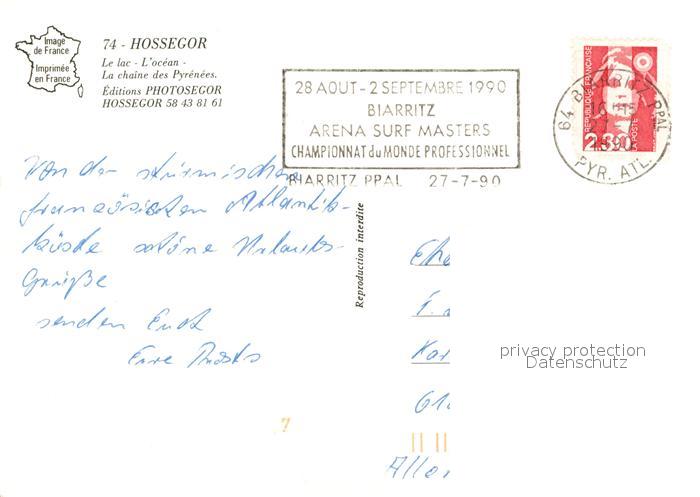 Image
de France
Imprimée
en France
74 - HOSSEGOR
Le lac - L'océan -
La chaîne des Pyrénées.
Éditions PHOTOSEGOR
HOSSEGOR 58 43 81 61
28 AOUT - 2 SEPTEMBRE 1990
BIARRITZ
ARENA SURF MASTERS
CHAMPIONNAT du MONDE PROFESSIONNEL
BIARRITZ PPAL 27-7-90
RÉPUBLIQUE FRANÇAISE
LA POSTE
2.30
64 BIARRITZ PPAL
1990
PYR. ATL.
Von der stürmischen
französischen Atlantik-
küste schöne Urlaubs-
Grüße
senden Euch
Eure
Reproduction interdite
privacy protection
Datenschutz
7